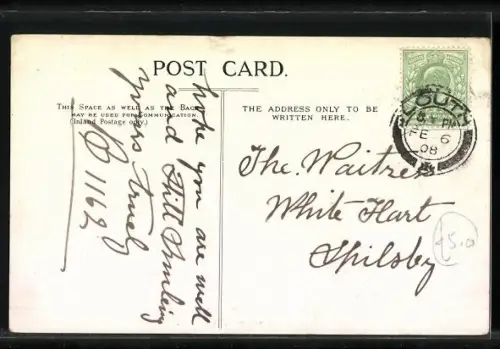 POST CARD.
THIS SPACE AS WELL AS THE BACK
MAY BE USED FOR COMMUNICATION.
(Inland Postage only.)
THE ADDRESS ONLY TO BE
WRITTEN HERE.
hope you are well
and Still Smiling
yours truely
B 1162
The Waitress
White Hart
Spilsby
LOUTH
FE 6
08
£5.0